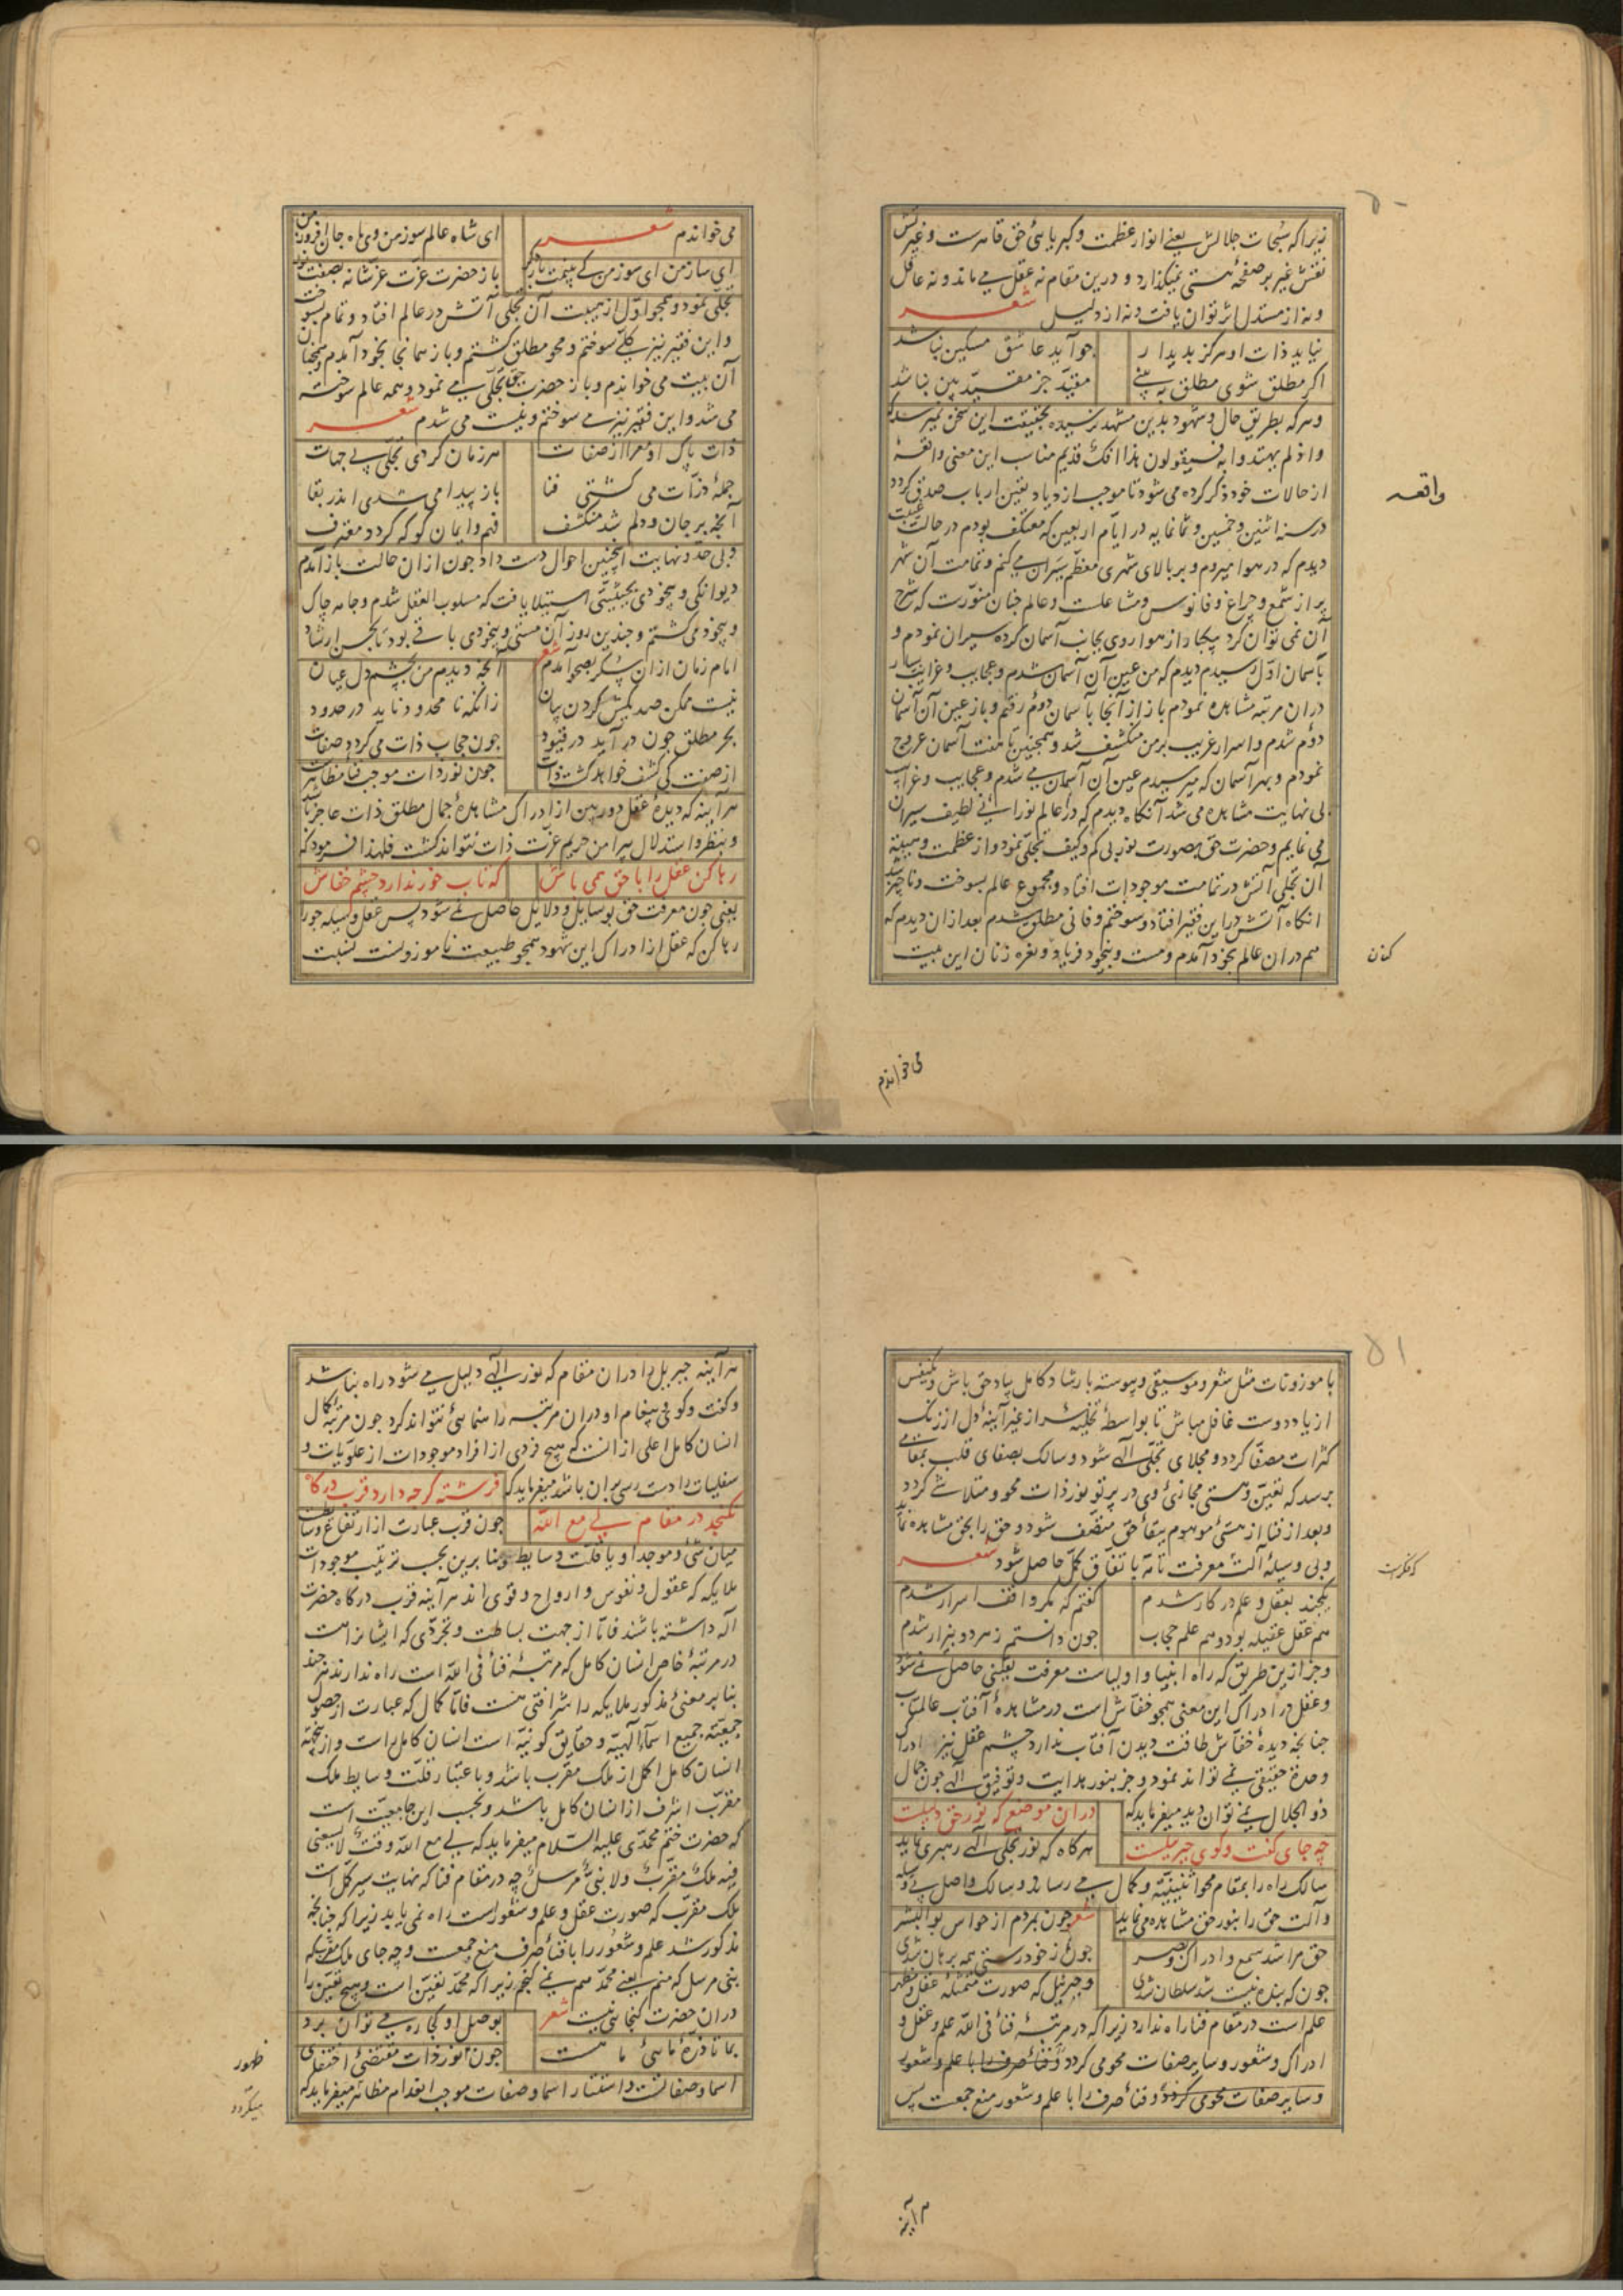 ۵۰
زیرا که سبحات جلالش یعنی انوار عظمت و کبریائی حق قاهرست و غیرتش
نقش غیر بر صفحهٔ هستی نمیگذارد و درین مقام نه عقل می ماند و نه عاقل
و نه از مستدل اثر توان یافت و نه از دلیل شعر
نیاید ذات او هرگز پدیدار
چو آید عاشق مسکین نباشد
اکر مطلق شوی مطلق به بینی
مقید جز مقید بین نباشد
و هرکه بطریق حال و شهود بدین مشهد نرسیده بحقیقت این سخن نمیرسد که
واذ لم یهتدوا به فسیقولون هذا افک قدیم مناسب این معنی واقعهٔ
واقعه
از حالات خود ذکر کرده می شود تا موجب ازدیاد یقین ارباب صدق کردد
در سنه اثنین و خمسین و ثمانمایه در ایام اربعین که معتکف بودم در حالت غیبت
دیدم که در هوا میروم و بر بالای شهری معظم سیران می کنم و تمامت آن شهر
پر از شمع و چراغ و فانوس و مشاعلست و عالم چنان منورست که شرح
آن نمی توان کرد بیکبار از هوا روی بجانب آسمان کرده سیران نمودم و
بآسمان اول رسیدم دیدم که من عین آن آسمان شدم و عجایب و غرایب بسیار
دران مرتبه مشاهده نمودم باز از آنجا بآسمان دوم رفتم و باز عین آن آسمان
دوم شدم و اسرار غریب بر من منکشف شد و همچنین تا هفت آسمان عروج
نمودم و بهر آسمان که میرسیدم عین آن آسمان می شدم و عجایب و غرایب
بی نهایت مشاهده می شد آنکاه دیدم که در عالم نورانی لطیف سیران
می نمایم و حضرت حق بصورت نور بی کم و کیف تجلی نمود و از عظمت و هیبت
آن تجلی آتش در تمامت موجودات افتاد و مجموع عالم بسوخت و ناچیز شد
انکاه آتش دراین فقیر افتاد و سوختم و فانی مطلق شدم بعد ازان دیدم که
هم دران عالم بخود آمدم و مست و بیخود فریاد و نعره زنان این بیت
کنان
می خواندم
می خواندم شعر
ای شاه عالم سوز من وی ماه جان افروز من
ای ساز من ای سوز من کی بینمت بار دکر
باز حضرت عزت عز شانه بصفت نور
تجلی نمود و همچو اول از هیبت آن تجلی آتش در عالم افتاد و تمام بسوخت
و این فقیر نیز کلی سوختم و محو مطلق کشتم و باز همانجا بخود آمدم و همچنان
آن بیت می خواندم و باز حضرت حق تجلی می نمود و همه عالم سوخته
می شد و این فقیر نیز می سوختم و نیست می شدم شعر
ذات پاک او معرا از صفات
هر زمان کردی تجلی بی جهات
جملهٔ ذرات می کشتی فنا
باز پیدا می شدی اندر بقا
آنچه بر جان و دلم شد منکشف
فهم و ایمان کو که کردد معترف
و بی حد و نهایت اینچنین احوال دست داد چون ازان حالت باز آمدم
دیوانکی و بیخودی بحیثیتی استیلا یافت که مسلوب العقل شدم و جامه چاک
و بیخود می کشتم و چندین روز آن مستی و بیخودی باقی بود تا بحسن ارشاد
امام زمان ازان سکر بصحو آمدم شعر
آنچه دیدم من بچشم دل عیان
نیست ممکن صد یکیش کردن بیان
زانکه نامحدود ناید در حدود
بحر مطلق چون در آید در قیود
چون حجاب ذات می کردد صفات
از صفت کی کشف خواهد کشت ذات
چون نور ذات موجب فناء مظاهرست
هر آینه که دیدهٔ عقل دوربین از ادراک مشاهدهٔ جمال مطلق ذات عاجز باشد
و بنظر و استدلال پیرامن حریم عزت ذات نتواند کشت فلهذا فرمود که
رها کن عقل را با حق همی باش
که تاب خور ندارد چشم خفاش
یعنی چون معرفت حق بوسایل و دلایل حاصل نمی شود پس عقل وسیله جو را
رها کن که عقل از ادراک این شهود همچو طبیعت ناموزونست نسبت
۵۱
با موزونات مثل شعر و موسیقی و پیوسته بارشاد کامل بیاد حق باش و یکنفس
از یاد دوست غافل مباش تا بواسطهٔ تخلیهٔ سر از غیر آینهٔ دل از زنک
کثرات مصفا کردد و مجلای تجلی الهی شود و سالک بصفای قلب بمقامی
برسد که تعین و هستی مجازی وی در پرتو نور ذات محو و متلاشی کردد
و بعد از فنا از هستی موهوم ببقاء حق متصف شود و حق را بحق مشاهده نماید
و بی وسیلهٔ آلت معرفت تامه باتفاق کل حاصل شود شعر
یکچند بعقل و علم درکار شدم
کفتم که مکر واقف اسرار شدم
هم عقل عقیله بود و هم علم حجاب
چون دانستم ز هر دو بیزار شدم
و جز ازین طریق که راه انبیا و اولیاست معرفت یقینی حاصل نمی شود
و عقل در ادراک این معنی همچو خفاش است در مشاهدهٔ آفتاب عالمتاب
چنانچه دیدهٔ خفاش طاقت دیدن آفتاب ندارد چشم عقل نیز ادراک
وحدة حقیقی نمی تواند نمود و جز بنور هدایت و توفیق الهی چون جمال
ذوالجلال نمی توان دید میفرماید که
دران موضع که نور حق دلیلست
چه جای کفت و کوی جبرئیلست
هرکاه که نور تجلی الهی رهبری نماید
سالک راه را بمقام محو اثنینیة و کمال می رساند و سالک واصل بی وسیله
و آلت حق را بنور حق مشاهده می نماید شعر
چون بمردم از حواس بوالبشر
حق مرا شد سمع و ادراک و بصر
چون ز خود رستی همه برهان شدی
چون که بنده نیست شد سلطان شدی
و جبرئیل که صورت متمثلهٔ عقل و مظهر
علم است در مقام فنا راه ندارد زیرا که در مرتبهٔ فناء فی الله علم و عقل و
ادراک و شعور و سایر صفات محو می کردد و فناء صرف را با علم و شعور
و سایر صفات محو می کردد و فناء صرف را با علم و شعور منع جمعست پس
هر آینه
هر آینه جبریل را دران مقام که نور الهی دلیل می شود راه نباشد
و کفت و کوی و پیغام او دران مرتبه راهنمائی نتواند کرد چون مرتبهٔ کمال
انسان کامل اعلی از انست که هیچ فردی از افراد موجودات از علویات و
سفلیات را دست رسی بران باشد میفرماید که
فرشته کرچه دارد قرب درکاه
نکنجد در مقام لی مع الله
چون قرب عبارت از ارتفاع وسایطست
میان شئ و موجد او یا قلت وسایط و بنا برین بحسب ترتیب موجودات
ملایکه که عقول و نفوس و ارواح و قوی اند هر آینه قرب درکاه حضرت
اله داشته باشند فاما از جهت بساطت و تجردی که ایشانراهست
در مرتبهٔ خاص انسان کامل که مرتبهٔ فناء فی الله است راه ندارند هر چند
بنا بر معنئ مذکور ملایکه را شرافتی هست فاما کمال که عبارت از حصول
جمعیت جمیع اسمآء الهیه و حقایق کونیه است انسان کامل راست و ازینجهة
انسان کامل اکمل از ملک مقرب باشد و باعتبار قلت وسایط ملک
مقرب اشرف از انسان کامل باشد و بحسب این جامعیت است
که حضرت ختم محمدی علیه السلام میفرماید که لی مع الله وقت لا یسعنی
فیه ملک مقرب ولا نبی مرسل چه در مقام فنا که نهایت سیر کل است
ملک مقرب که صورت عقل و علم و شعورست راه نمی یابد زیرا که چنانچه
مذکور شد علم و شعور را با فناء صرف منع جمعست و چه جای ملک مقرب که
نبی مرسل که منم یعنی محمد هم نمی کنجم زیرا که محمد تعین است و هیچ تعین را
دران حضرت کنجائی نیست شعر
بوصل او کجا ره می توان برد
بما تا ذرهٔ مائی ما هست
چون نور ذات مقتضئ اختفای
ظهور
اسما و صفاتست و استتار اسما و صفات موجب انعدام مظاهر میفرماید که
میکردد